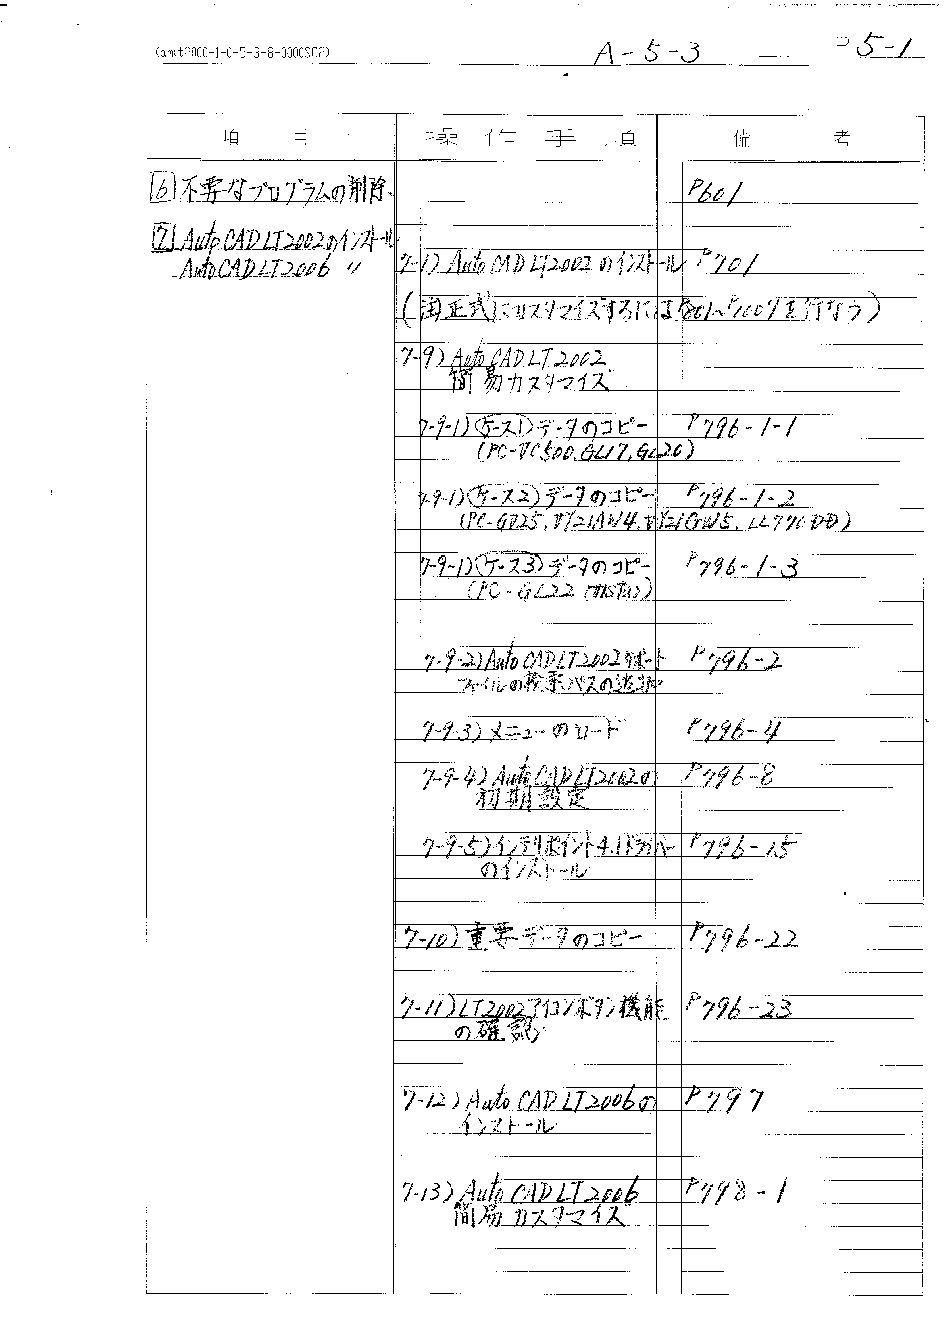 A-5-3 P5-1
項 目 操 作 手 順 備 考
6 不要なプログラムの削除 P601
7 AutoCADLT2002のインストール
AutoCADLT2006 〃
7-1) AutoCADLT2002のインストール P701
正式にカスタマイズするには を行なう)
7-9) AutoCADLT2002
簡易カスタマイズ
7-9-1)(ケース1)データのコピー P796-1-1
7-9-1)(ケース2)データのコピー P796-1-2
7-9-1)(ケース3)データのコピー P796-1-3
(PC-GL22
7-9-2)AutoCADLT2002サポート P796-2
ファイルの検索パスの追加
7-9-3)メニューのロード P796-4
7-9-4)AutoCADLT2002の P796-8
初期設定
7-9-5)インテリポイント4.1ドライバー P796-15
のインストール
7-10)重要データのコピー P796-22
7-11)LT2002アイコンボタン機能 P796-23
の確認
7-12)AutoCADLT2006の P797
インストール
7-13)AutoCADLT2006 P798-1
簡易カスタマイズ